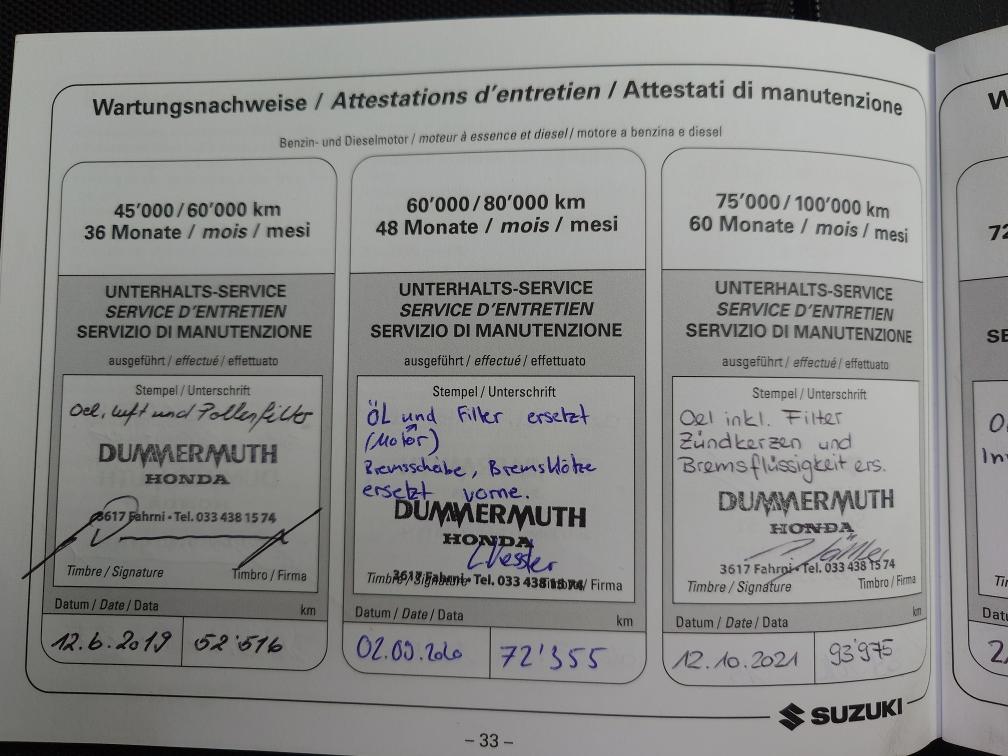 Wartungsnachweise / Attestations d'entretien / Attestati di manutenzione
Benzin- und Dieselmotor / moteur à essence et diesel / motore a benzina e diesel
45'000/60'000 km
36 Monate / mois / mesi
UNTERHALTS-SERVICE
SERVICE D'ENTRETIEN
SERVIZIO DI MANUTENZIONE
ausgeführt / effectué / effettuato
Stempel / Unterschrift
Oel, Luft und Pollenfilter
DUMMERMUTH
HONDA
3617 Fahrni • Tel. 033 438 15 74
Timbre / Signature Timbro / Firma
Datum / Date / Data km
12.6.2019 52'516
60'000/80'000 km
48 Monate / mois / mesi
UNTERHALTS-SERVICE
SERVICE D'ENTRETIEN
SERVIZIO DI MANUTENZIONE
ausgeführt / effectué / effettuato
Stempel / Unterschrift
ÖL und Filter ersetzt
(Motor)
Bremsscheibe, Bremsklötze
ersetzt vorne.
DUMMERMUTH
HONDA
3617 Fahrni • Tel. 033 438 15 74
Timbre / Signature Timbro / Firma
Datum / Date / Data km
02.09.2020 72'355
75'000/100'000 km
60 Monate / mois / mesi
UNTERHALTS-SERVICE
SERVICE D'ENTRETIEN
SERVIZIO DI MANUTENZIONE
ausgeführt / effectué / effettuato
Stempel / Unterschrift
Oel inkl. Filter
Zündkerzen und
Bremsflüssigkeit ers.
DUMMERMUTH
HONDA
3617 Fahrni • Tel. 033 438 15 74
Timbre / Signature Timbro / Firma
Datum / Date / Data km
12.10.2021 93'975
SUZUKI
– 33 –